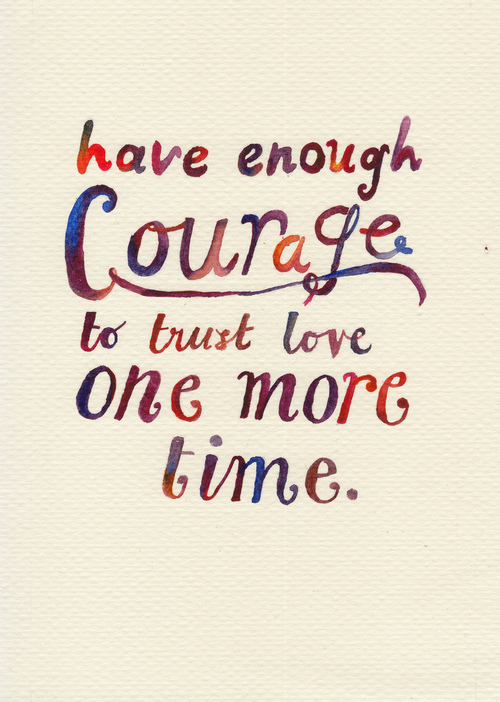 have enough
Courage
to trust love
one more
time.